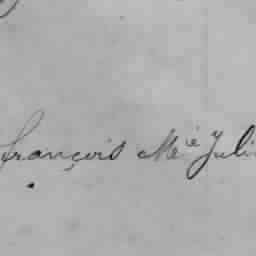 françois M.ie Juli